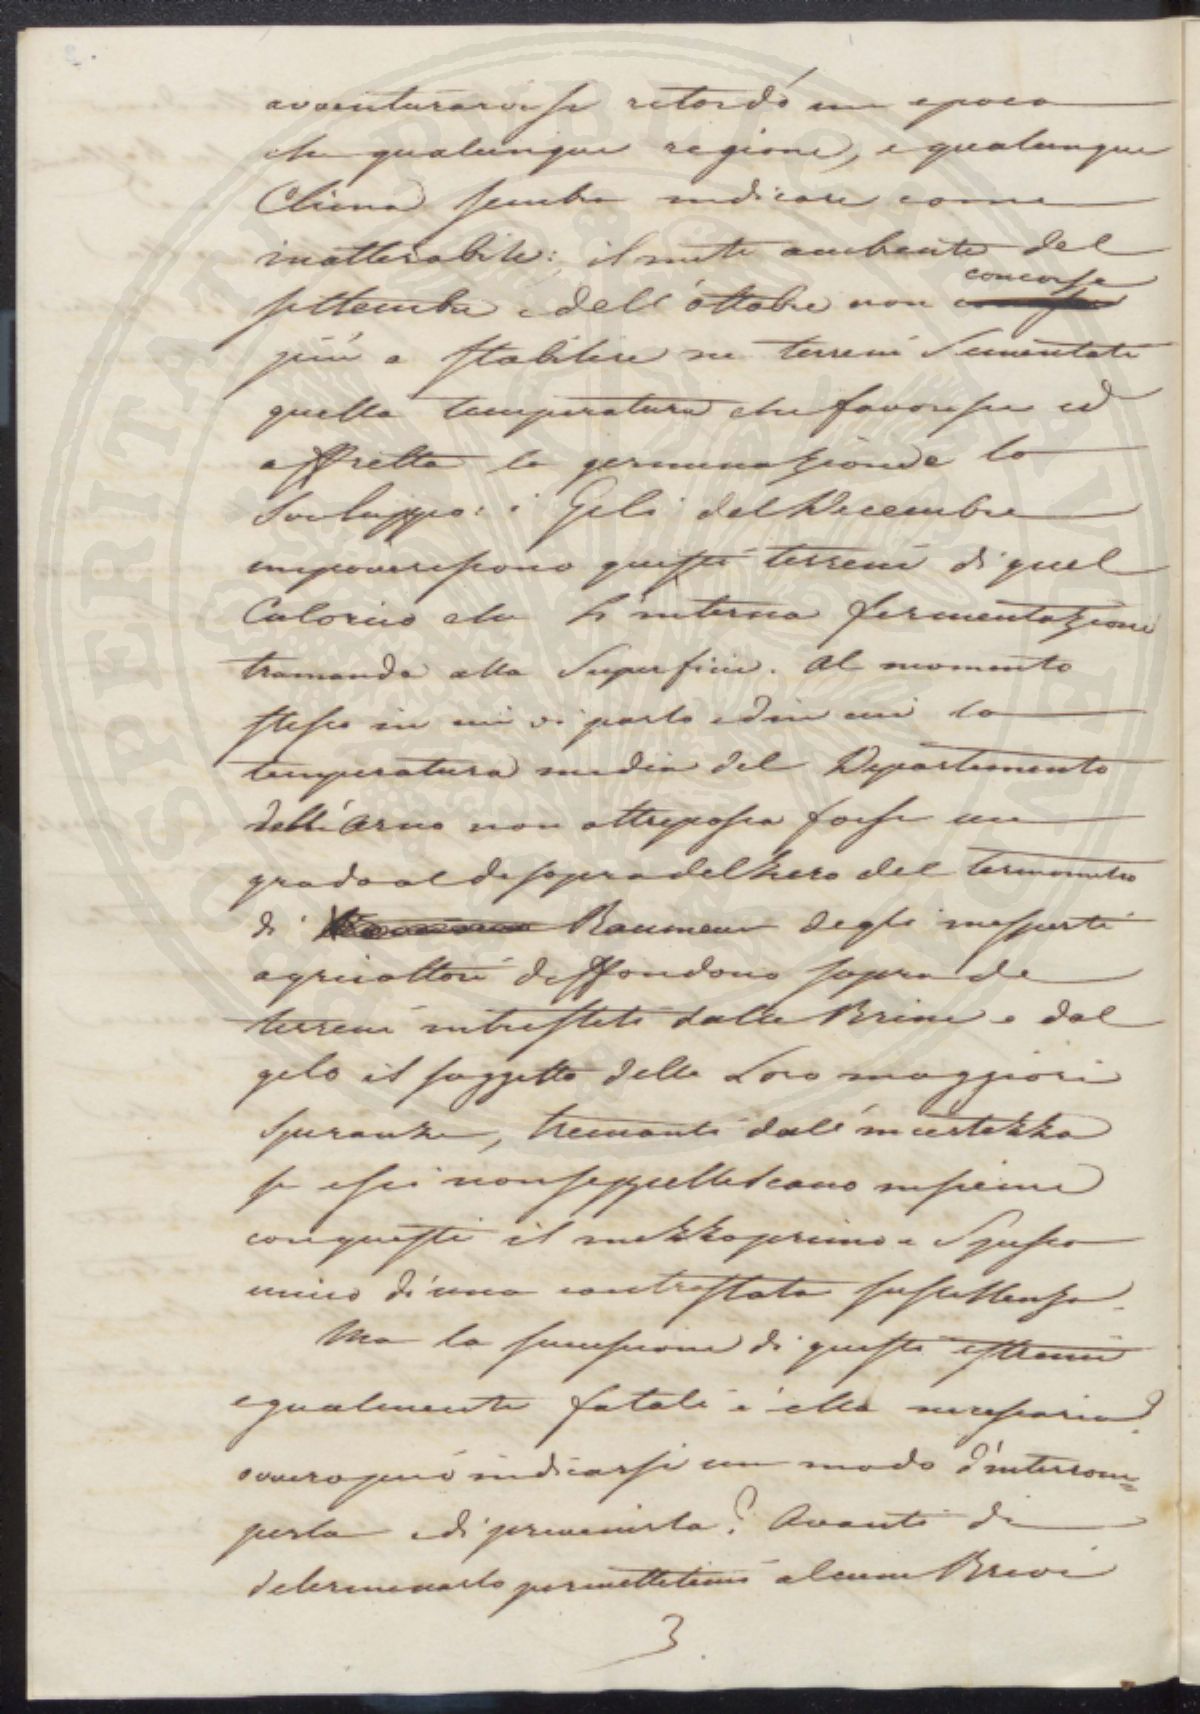 avventurarvisi ritardò un epoca
che qualunque regione, e qualunque
Clima sembra indicare come
inalterabile: il mite ambiente del
settembre e dell'ottobre non concorse
più a stabilire ne terreni Sementati
quella temperatura che favorisce ed
affretta la germinazione e lo
Sviluppo: i Geli del Decembre
impoveriscono questi terreni di quel
Calorico che l'interna fermentazione
tramanda alla Superficie. Al momento
stesso in cui vi parlo ed in cui la
temperatura media del Dipartimento
dell'Arno non oltrepassa forse un
grado al di sopra del zero del termometro
di Raumeur degli inesperti
agricoltori diffondono sopra de
terreni intristiti dalle Brine e dal
gelo il soggetto delle Loro maggiori
Speranze, tremanti dall'incertezza
se essi non seppelliscano insieme
con questi il mezzo primo e Spesso
unico di una contrastata sussistenza.
Ma la successione di questi estremi
egualmente fatali è ella necessaria?
ovvero può indicarsi un modo d'interrom=
perla e di prevenirla? Avanti di
determinarlo permettetemi alcuni Brevi
3